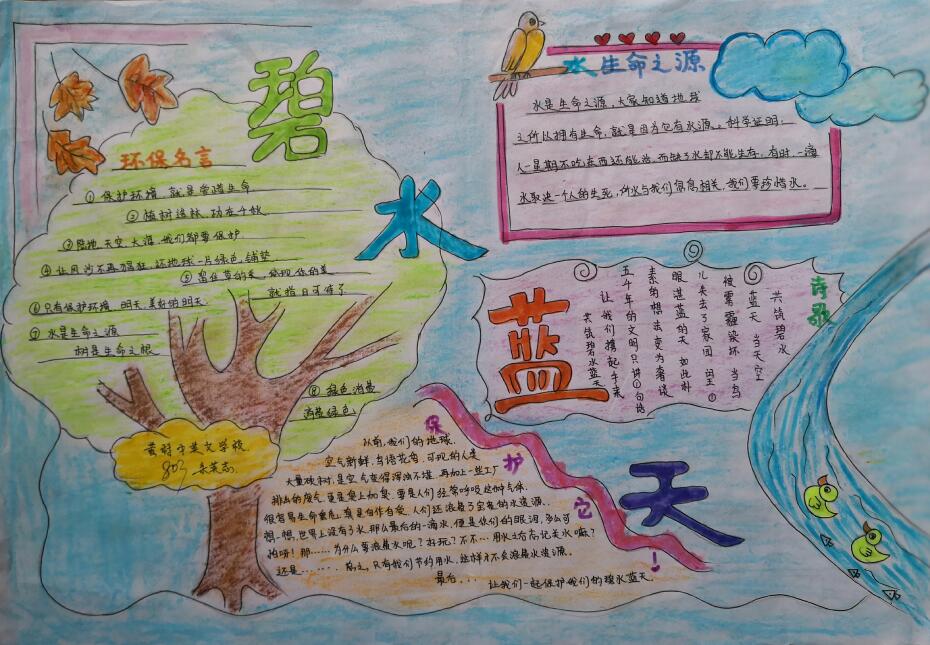 碧
水
蓝
天
环保名言
① 保护环境，就是爱惜生命
② 植树造林，功在千秋
③ 陆地、天空、大海，我们都要保护
④ 让风沙不再猖狂，还地球一片绿色铺垫
⑤ 留住草的美
就指日可待了
⑥ 只有保护环境，明天美好的明天
⑦ 水是生命之源
树是生命之根
⑧ 绿色消费
消费绿色
黄冈市英文学校
803
水 生命之源
水是生命之源，大家知道地球
之所以拥有生命，就是因为它有水源。科学证明：
人一星期不吃东西还能活，而缺了水却不能生存，有时，一滴
水取决一个人的生死，所以与我们息息相关，我们要珍惜水。
诗歌
共筑碧水
蓝天 当天空
被雾霾染坏 当鸟
儿失去了家园 闭上
眼湛蓝的天 如此朴
素的想法变为奢谈
五千年的文明只讲
让我们携起手来
共筑碧水蓝天
保护它!
从前，我们的地球，
空气新鲜，鸟语花香，可现的人类
大量砍树，是空气变得浑浊不堪，再加上一些工厂
排出的废气，更是雪上加霜，要是人们经常呼吸这种气体，
很容易生命垂危，真是自作自受，人们还浪费了宝贵的水资源。
想一想，世界上没有了水，那么最后的一滴水，便是我们的眼泪，多么可
怕呀！那……为什么要浪费水呢？好玩？不不…用水之后忘记关水嘛？
还是……。总之，只有我们节约用水，这样才不会浪费水资源。
最后，...
让我们一起保护我们的碧水蓝天。